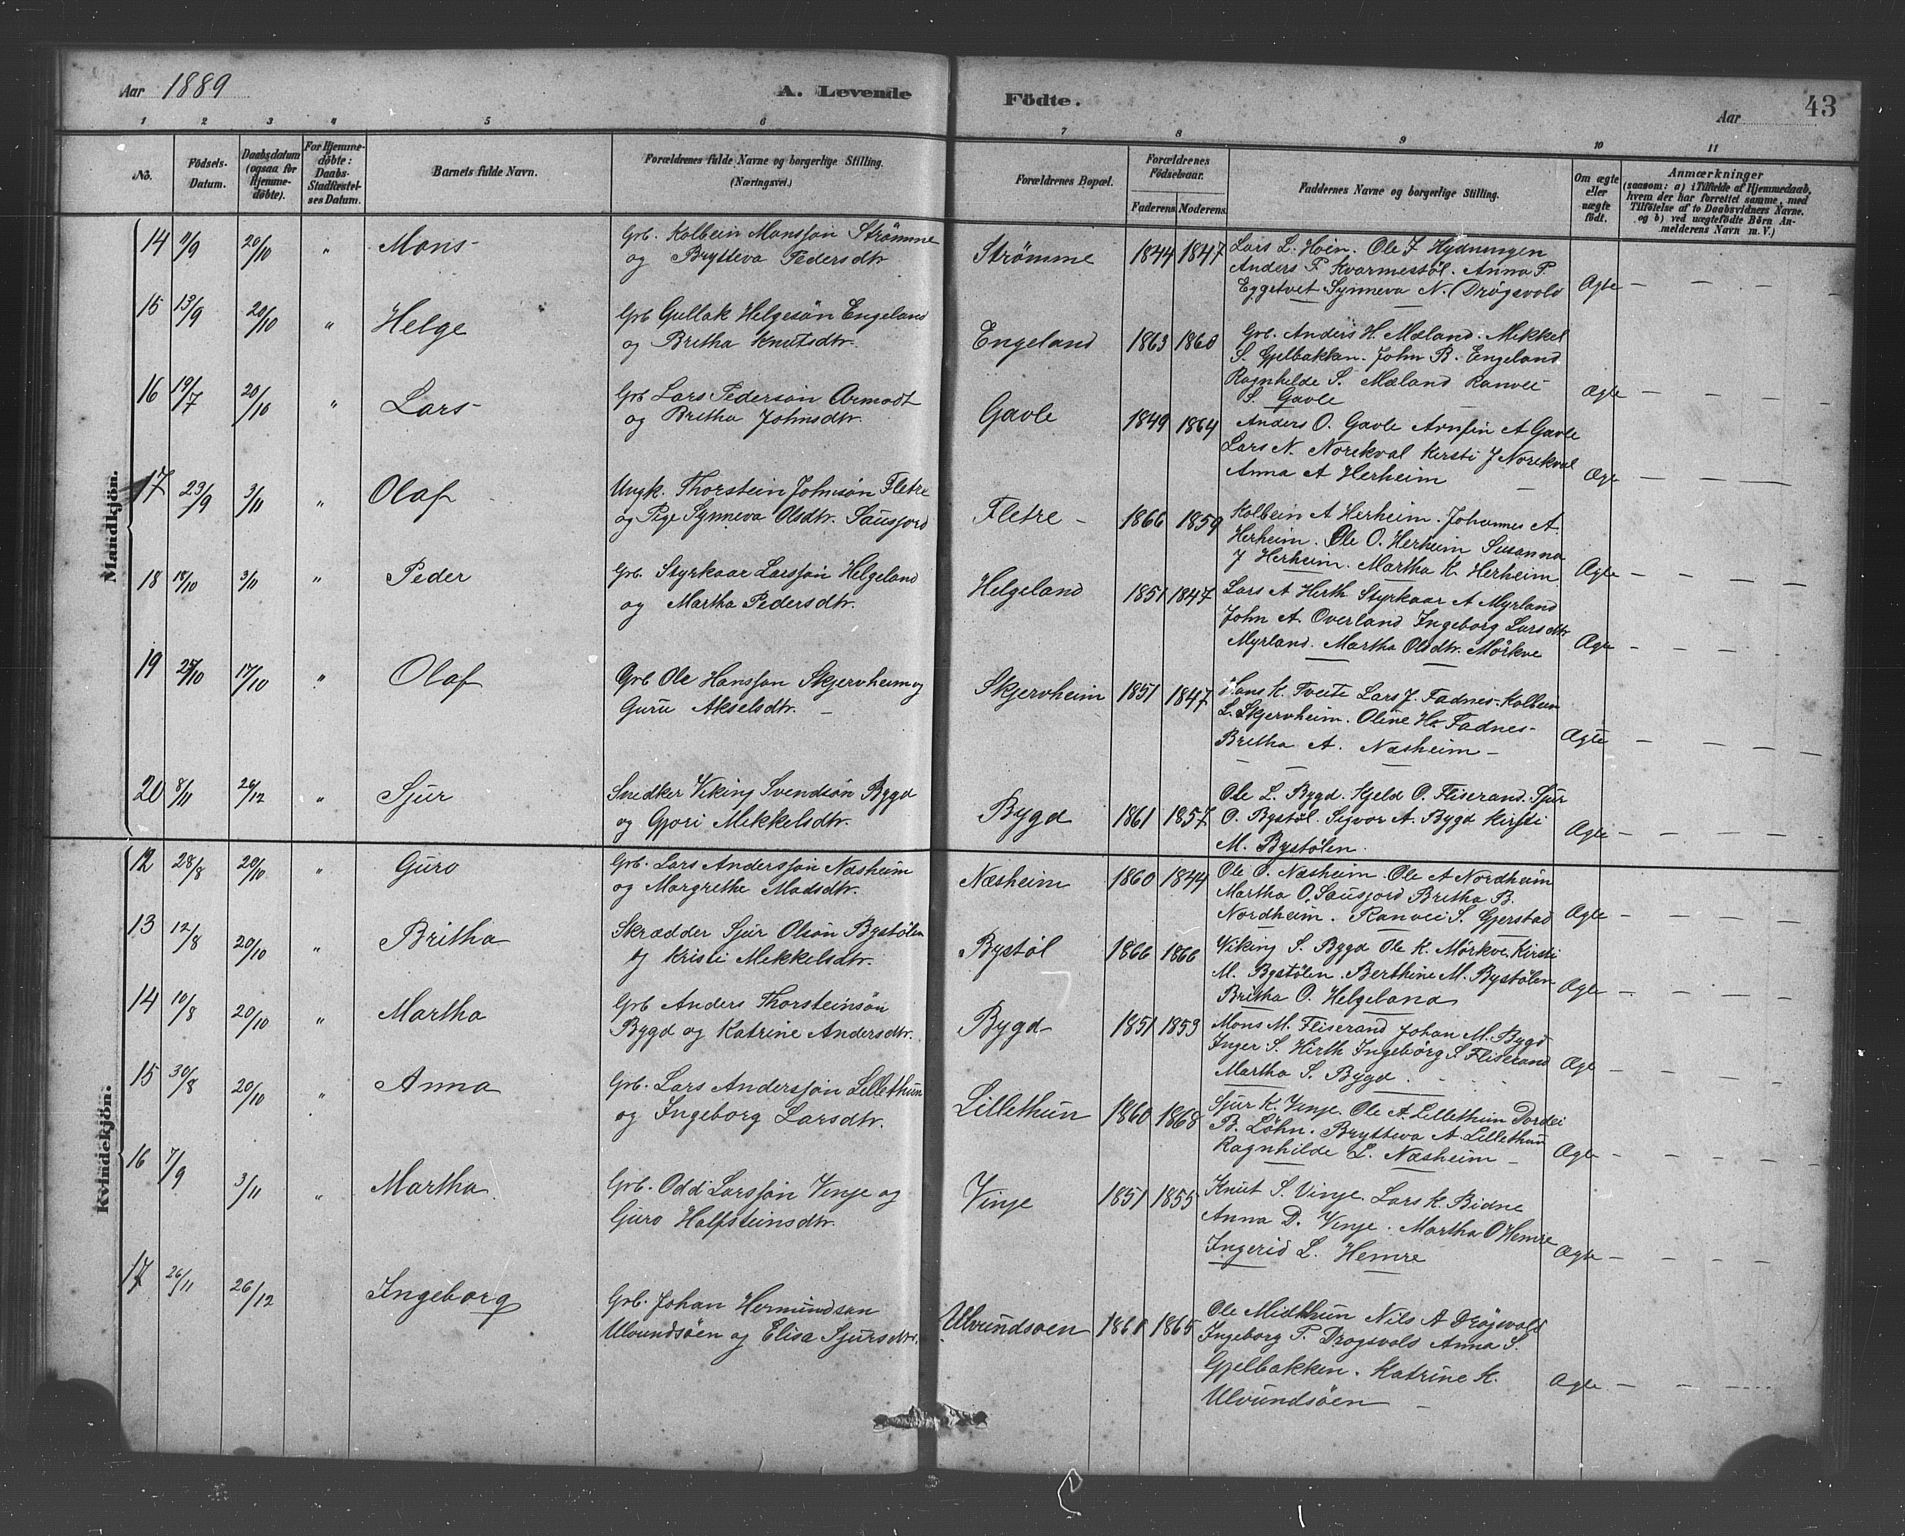 Aar 1889
A. Levende Födte.
Aar
43
1 2 3 4 5 6 7 8 9 10 11
No.
Födsels-Datum.
Daabsdatum (ogsaa for Hjemmedöbte).
For Hjemmedöbte: Daabs-Stadfæstelses Datum.
Barnets fulde Navn.
Forældrenes fulde Navne og borgerlige Stilling. (Næringsvei.)
Forældrenes Bopæl.
Forældrenes Födselsaar.
Faderens. Moderens.
Faddernes Navne og borgerlige Stilling.
Om ægte eller uægte födt.
Anmærkninger
(saasom: a) i Tilfælde af Hjemmedaab, hvem der har forrettet samme, med Tilföielse af to Daabsvidners Navne, og b) ved uægtefödte Börn Anmelderens Navn m. V.)
Mandkjön.
14 9/9 20/10 " Mons - Grb. Kolbein Monsson Strømme
og Brytteva Pedersdtr
Strømme 1844 1847 Lars L. Hoin. Ole J Hydningen
Anders P Kvarmestöl. Anna P.
Eggetvet Synneva N. Drøgsvold Ægte — — — —
15 13/9 20/10 " Helge Grb Gullak Helgesøn Engeland
og Britha Knutsdtr.
Engeland 1863 1860 Grb. Anders H. Mæland. Mikkel
S. Gjelbakken. John B. Engeland
Ragnhilde S. Mæland Ranvei
S. Gavle Ægte — — — —
16 19/7 20/10 " Lars - Grb Lars Pedersøn Armodt
og Britha Johnsdtr.
Gavle 1849 1864 Anders O. Gavle Arnfin A Gavle
Lars N. Norekval Kersti J Norekval
Anna A Herheim Ægte — — —
17 23/9 3/11 " Olaf Ungk. Thorstein Johnsøn Fletre
og Pige Synneva Olsdtr. Sausjord
Fletre - 1866 1859 Kolbein A Herheim. Johannes A.
Herheim. Ole O. Herheim Susanna
J Herheim. Martha K. Herheim Ægte — — — —
18 18/10 3/11 " Peder Grb. Styrkaar Larssøn Helgeland
og Martha Pedersdtr.
Helgeland 1851 1847 Lars A Hirth Styrkaar A Myrland
John A. Overland Ingeborg Larsdtr
Myrland. Martha Olsdtr. Mörkve Ægte — — — —
19 25/10 17/10 " Olaf Grb Ole Hanssøn Skjervheim og
Guru Akselsdtr. —
Skjervheim 1851 1847 Hans K. Tveite Lars J. Fadnes. Kolbein
L. Skjervheim. Oline H. Fadnes-
Britha A. Næsheim — Ægte — — — — —
20 8/11 26/12 " Sjur Snedker Viking Svendsön Bygd
og Gjori Mikkelsdtr.
Bygd 1861 1857 Ole L. Bygd. Hjeld O. Fliserand. Sjur
O. Bystøl. Sigvor A. Bygd Kirsti
M. Bystølen. Ægte — — — — —
Kvindekjön.
12 28/8 20/10 " Guro Grb. Lars Anderssøn Næsheim
og Margrethe Madsdtr.
Næsheim 1860 1844 Ole O. Næsheim. Ole A Nordheim
Martha O. Sausjord Britha B.
Nordheim. Ranvei S. Gjerstad Ægte — — — — —
13 12/8 20/10 " Britha Skrædder Sjur Olsøn Bystølen
og Kristi Mekkelsdtr.
Bystøl 1866 1866 Viking S. Bygd Ole K. Mörkve. Kirsti
M. Bystølen. Berthine M. Bystølen
Britha O. Helgeland Ægte — — — — —
14 10/8 20/10 " Martha Grb Anders Thorsteinsön
Bygd og Katrine Andersdtr.
Bygd 1851 1853 Mons M. Fliserand Johan M. Bygd
Inger S. Hirth Ingebörg S Fliserand
Martha S. Bygd. Ægt — — — —
15 30/8 20/10 " Anna Grb. Lars Anderssøn Lillethun
og Ingeborg Larsdtr.
Lillethun 1860 1868 Sjur K. Vinje. Ole A. Lillethun Dordei
B. Löhn. Brytteva A. Lillethun
Ragnhilde L. Næsheim — Ægte — — — —
16 7/9 3/11 " Martha. Grb. Odd Larssøn Vinje og
Guro Halfsteinsdtr.
Vinje 1851 1855 Knut S. Vinje. Lars K. Bidne
Anna D. Vinje. Martha O Hemre
Ingerid L. Hemre Ægte — — — — —
17 26/11 26/12 Ingeborg Grb. Johan Hermundsøn
Ulvundsøen og Elisa Sjursdtr.
Ulvundsøen 1865 Ole Midthun Nils A Drøgsvold
Ingeborg P. Drogsvols Anna S.
Gjelbakken. Katrine K.
Ulvundsöen — Ægte — — —